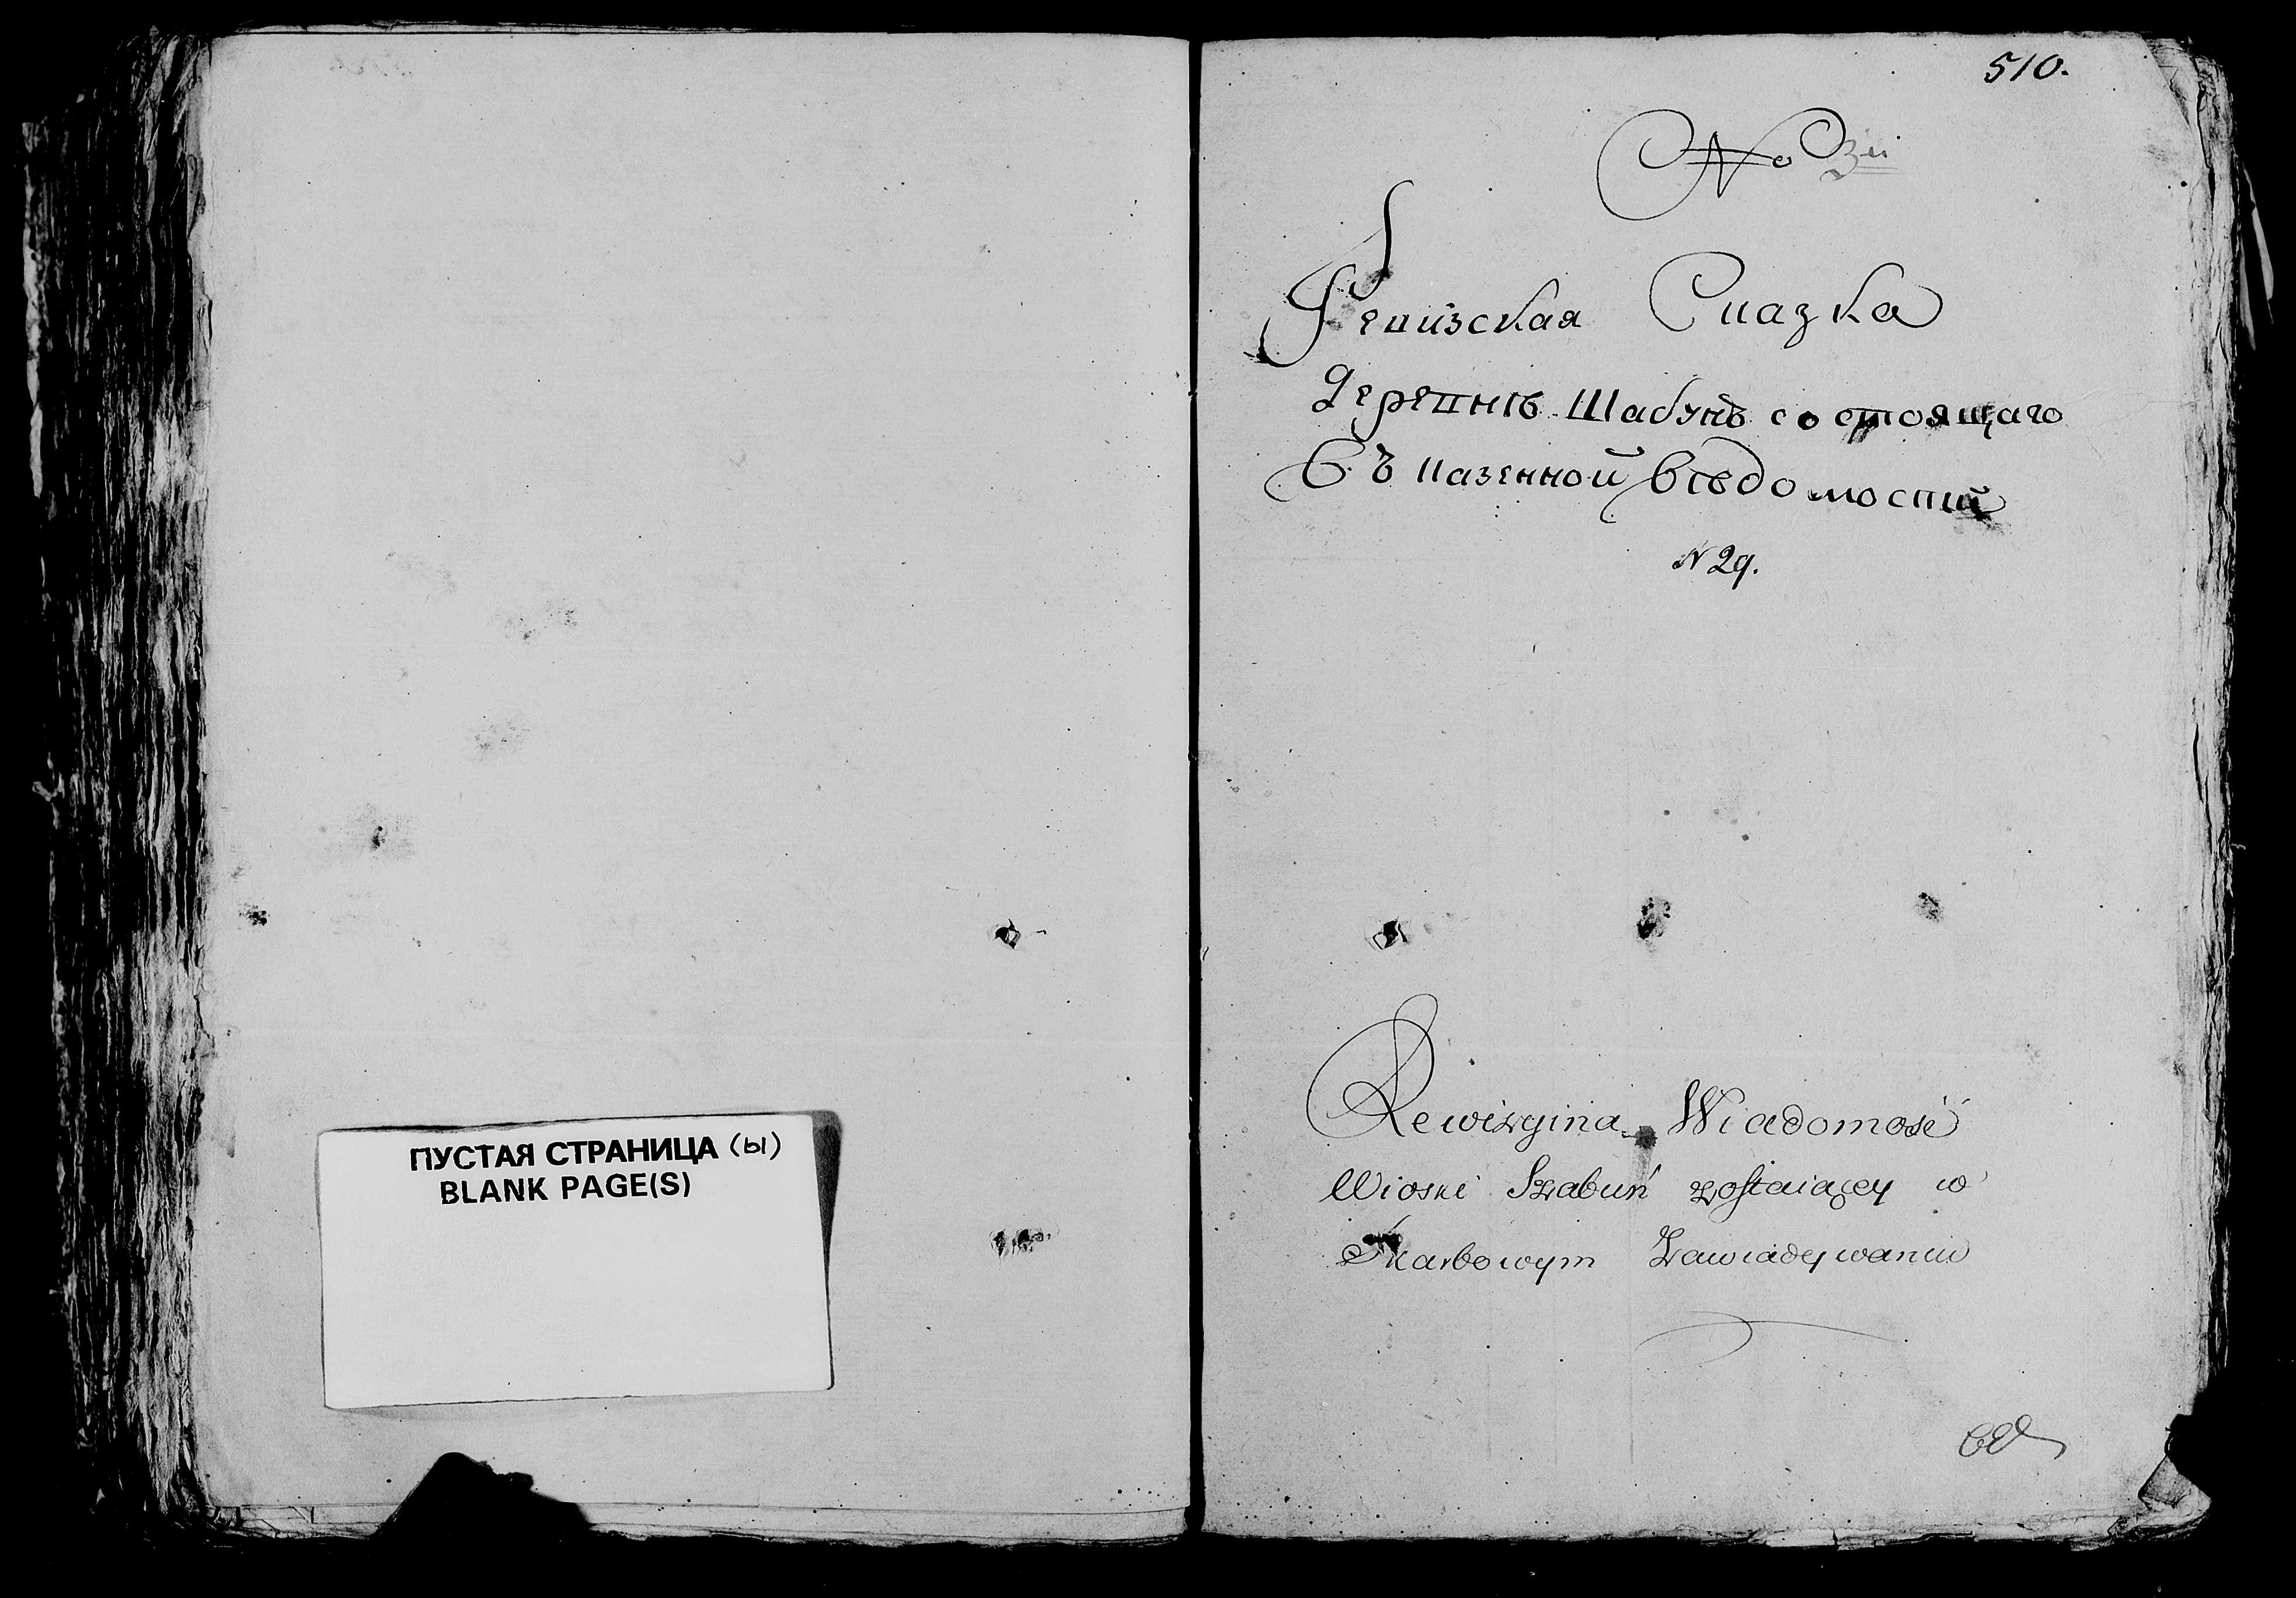 ПУСТАЯ СТРАНИЦА (ы)
BLANK PAGE(S)
510.
No 3й
Ревизская Сказка
Деревнѣ Шабунь состоящаго
Въ казенной вѣдомости
N 29.
Rewizyina Wiadomość
Wioski Szabuń zostaiącey w
Skarbowym Zawiadywaniu